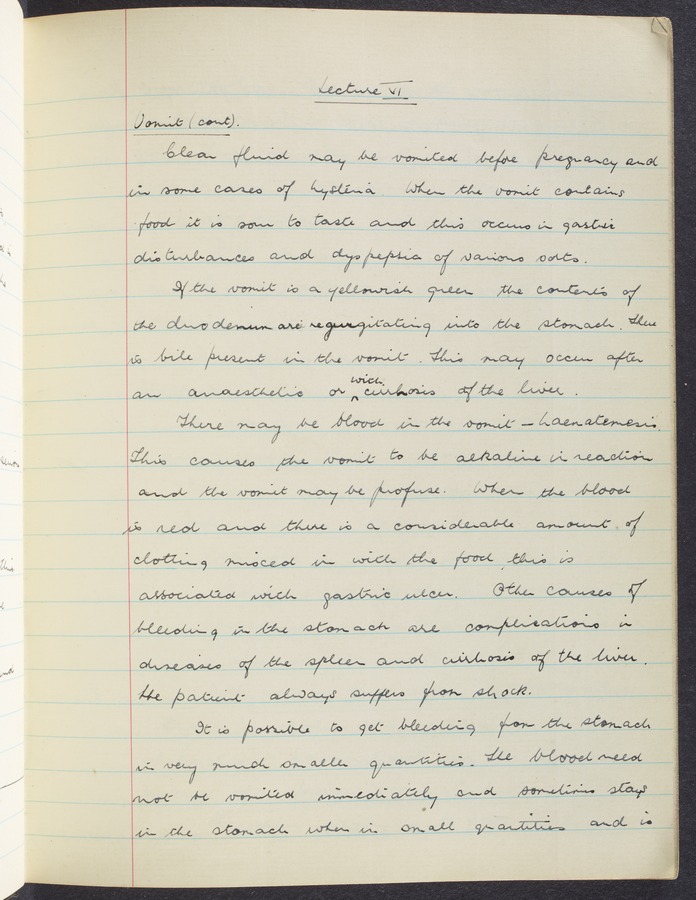 Lecture VI
Vomit (cont).
Clear fluid may be vomited before pregnancy and
in some cases of hysteria. When the vomit contains
food it is sour to taste and this occurs in gastric
disturbances and dyspepsia of various sorts.
If the vomit is a yellowish green the contents of
the duodenum are regurgitating into the stomach. There
is bile present in the vomit. This may occur after
an anaesthetic or with cirrhosis of the liver.
There may be blood in the vomit – haematemesis.
This causes the vomit to be alkaline in reaction
and the vomit may be profuse. When the blood
is red and there is a considerable amount of
clotting mixed in with the food, this is
associated with gastric ulcer. Other causes of
bleeding in the stomach are complications in
diseases of the spleen and cirrhosis of the liver.
The patient always suffers from shock.
It is possible to get bleeding from the stomach
in very much smaller quantities. The blood need
not be vomited immediately and sometimes stays
in the stomach when in small quantities and is